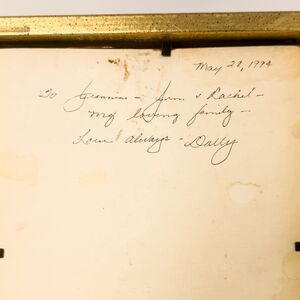 May 20, 1994
To Jeannine - Jim & Rachel -
my loving family -
Love always - Dally